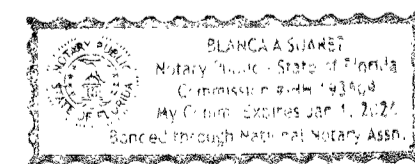 NOTARY PUBLIC
STATE OF FLORIDA
BLANCA A SUAREZ
Notary Public - State of Florida
Commission
My Comm. Expires Jan 1,
Bonded through National Notary Assn.